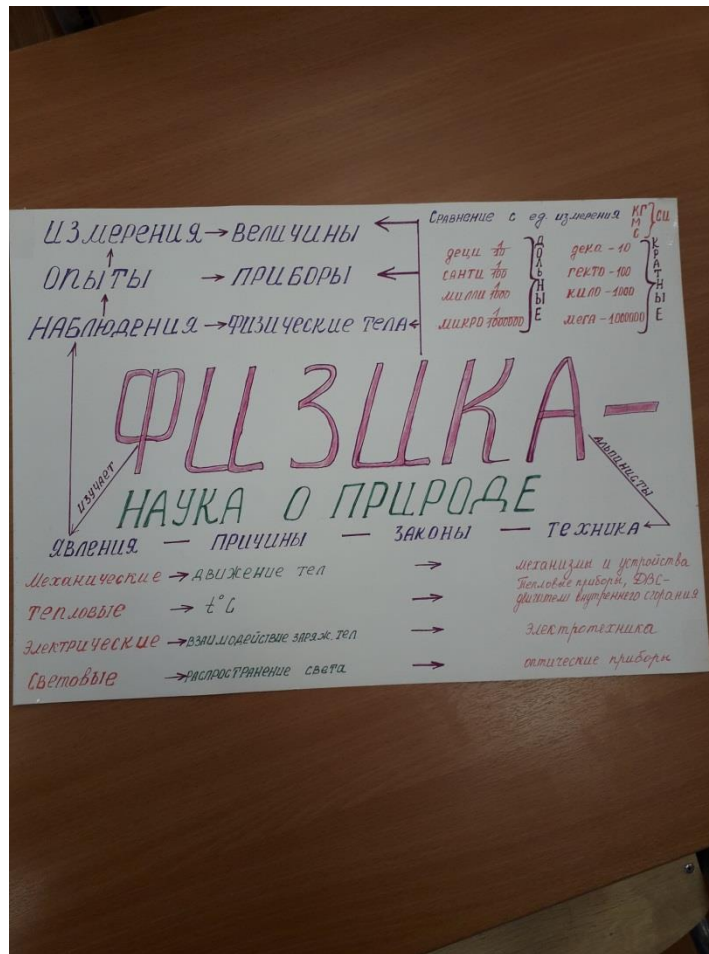 ИЗМЕРЕНИЯ → ВЕЛИЧИНЫ
ОПЫТЫ → ПРИБОРЫ
НАБЛЮДЕНИЯ → ФИЗИЧЕСКИЕ ТЕЛА
СРАВНЕНИЕ С ЕД. ИЗМЕРЕНИЯ КГ М С } СИ
ДЕЦИ 1/10
САНТИ 1/100
МИЛЛИ 1/1000
МИКРО 1/1000000
ДОЛЬНЫЕ
ДЕКА - 10
ГЕКТО - 100
КИЛО - 1000
МЕГА - 1000000
КРАТНЫЕ
ФИЗИКА —
ИЗУЧАЕТ
АЛЬПАНИСТЫ
НАУКА О ПРИРОДЕ
ЯВЛЕНИЯ — ПРИЧИНЫ — ЗАКОНЫ — ТЕХНИКА
Механические → ДВИЖЕНИЕ ТЕЛ → механизмы и устройства
Тепловые → t°C → Тепловые приборы, ДВС-
двигатели внутреннего сгорания
Электрические → ВЗАИМОДЕЙСТВИЕ ЗАРЯЖ. ТЕЛ → Электротехника
Световые → РАСПРОСТРАНЕНИЕ СВЕТА → оптические приборы